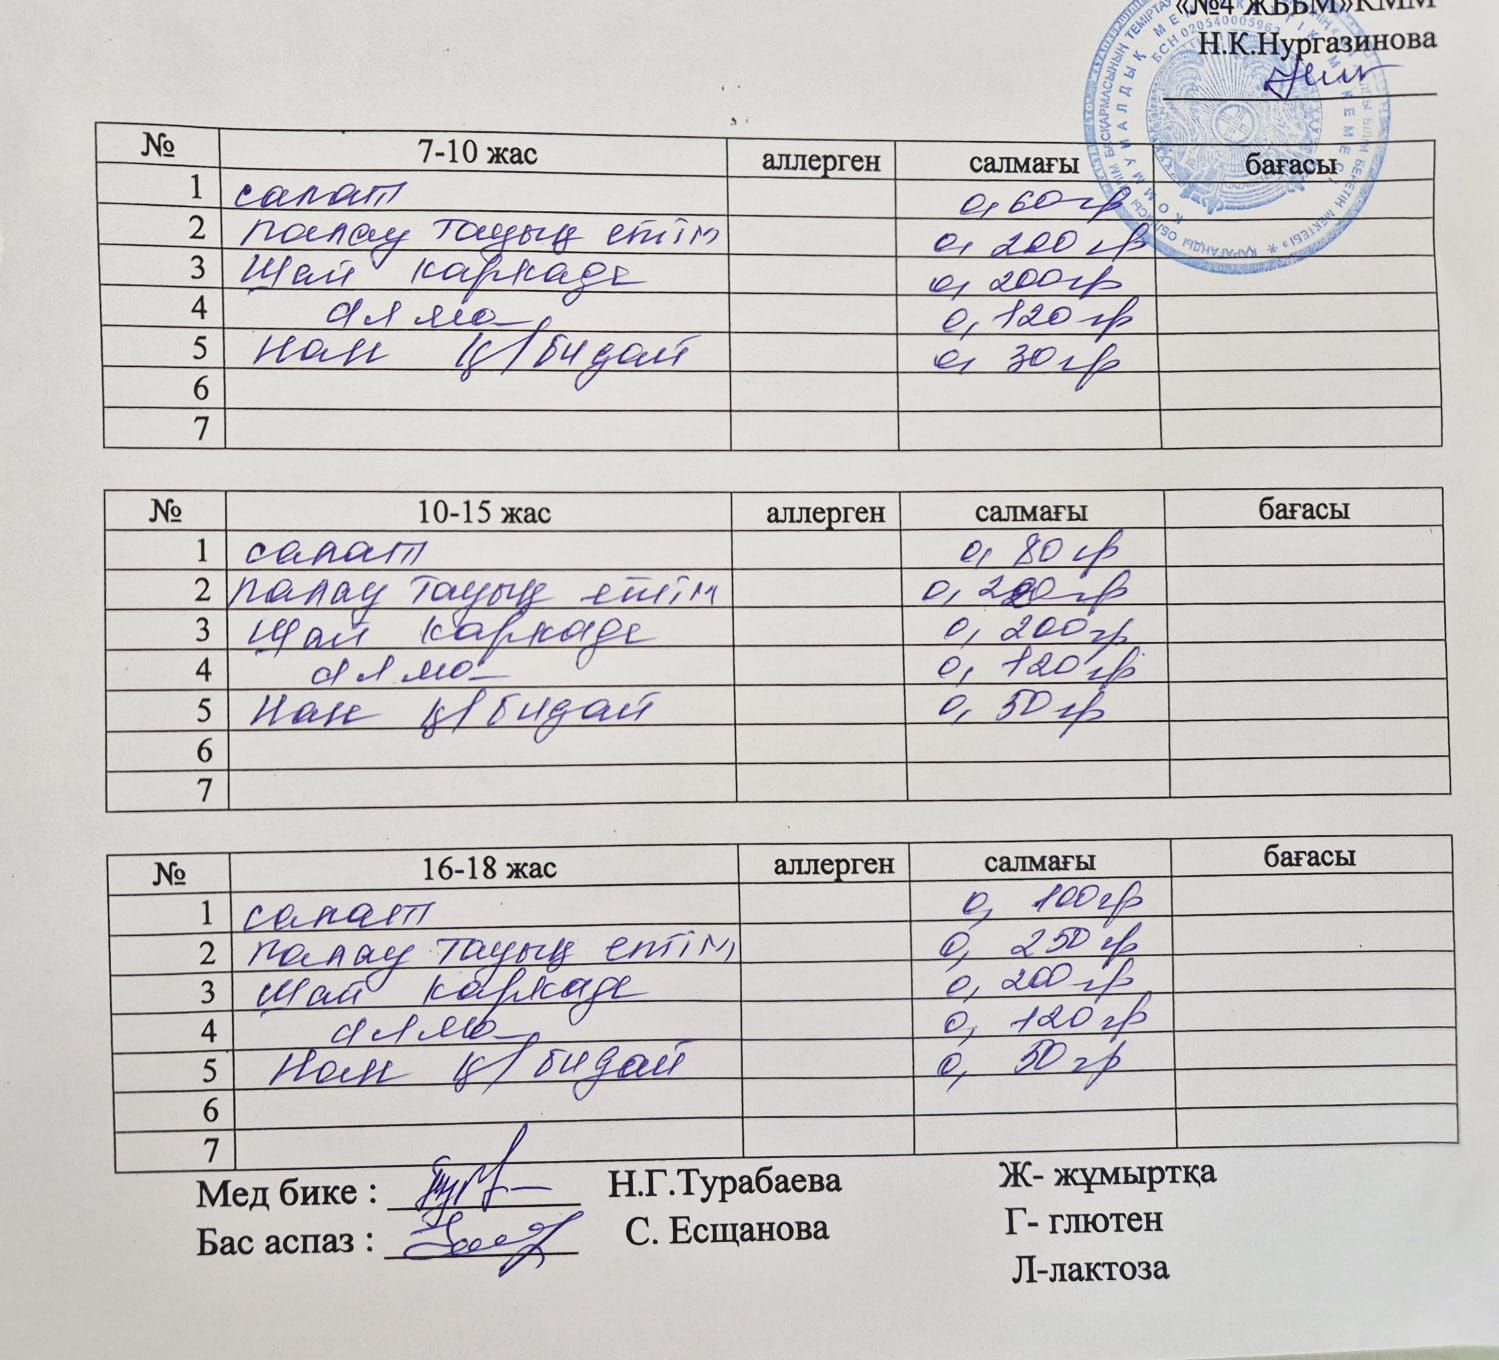 «№4 ЖББМ»КММ
Н.К.Нургазинова
БСН 020540005963
№ 7-10 жас аллерген салмағы бағасы
1 салат 0,60гр
2 палау тауық етім 0,200гр
3 Шай каркаде 0,200гр
4 алма 0,120гр
5 Нан қ/бидай 0,30гр
6
7
№ 10-15 жас аллерген салмағы бағасы
1 салат 0,80гр
2 палау тауық етім 0,200гр
3 Шай каркаде 0,200гр
4 алма 0,120гр
5 Нан қ/бидай 0,50гр
6
7
№ 16-18 жас аллерген салмағы бағасы
1 салат 0,100гр
2 палау тауық етім 0,250гр
3 Шай каркаде 0,200гр
4 алма 0,120гр
5 Нан қ/бидай 0,50гр
6
7
Мед бике : Н.Г.Турабаева Ж- жұмыртқа
Бас аспаз : С. Есщанова Г- глютен
Л-лактоза